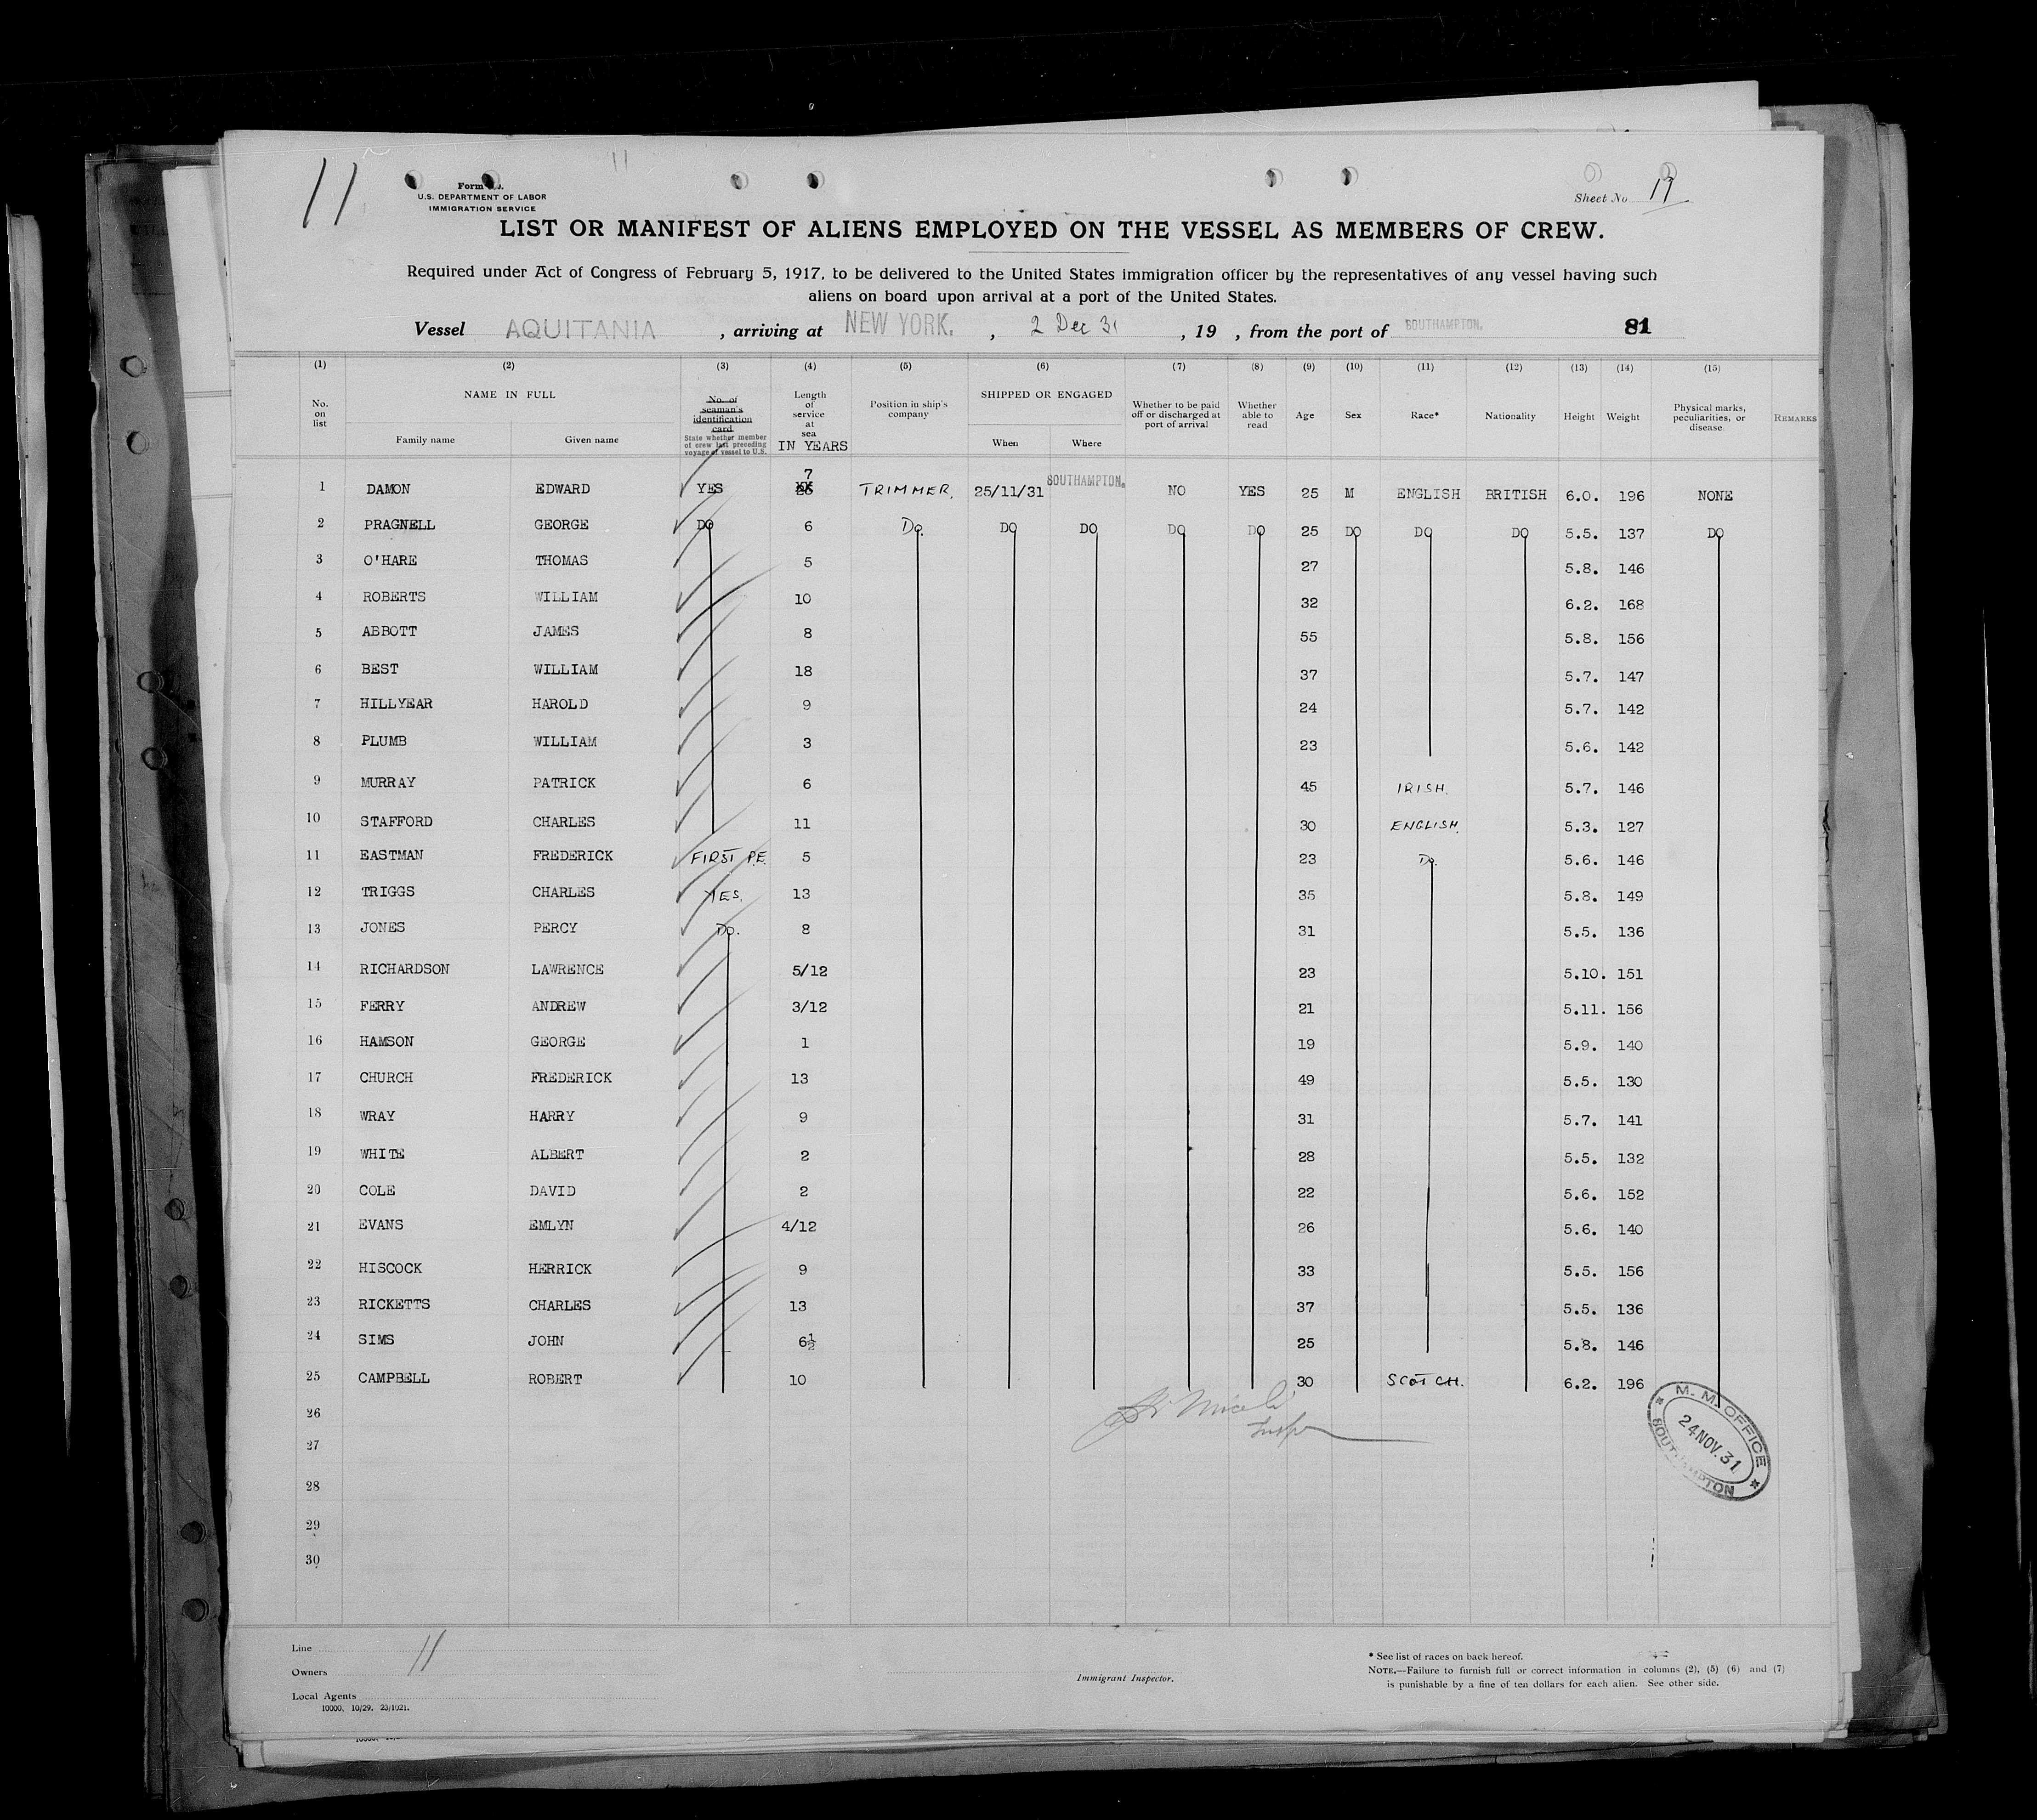 11
11
Form
U.S. DEPARTMENT OF LABOR
IMMIGRATION SERVICE
Sheet No
LIST OR MANIFEST OF ALIENS EMPLOYED ON THE VESSEL AS MEMBERS OF CREW.
Required under Act of Congress of February 5, 1917, to be delivered to the United States immigration officer by the representatives of any vessel having such
aliens on board upon arrival at a port of the United States.
Vessel AQUITANIA , arriving at NEW YORK. , 2 Dec 31 , 19 , from the port of SOUTHAMPTON. 81
(1) (2) (3) (4) (5) (6) (7) (8) (9) (10) (11) (12) (13) (14) (15)
No. on list NAME IN FULL Family name Given name No. of seaman's identification card State whether member of crew last preceding voyage of vessel to U.S. Length of service at sea IN YEARS Position in ship's company SHIPPED OR ENGAGED When Where Whether to be paid off or discharged at port of arrival Whether able to read Age Sex Race* Nationality Height Weight Physical marks, peculiarities, or disease. REMARKS
1 DAMON EDWARD YES 7 TRIMMER. 25/11/31 SOUTHAMPTON. NO YES 25 M ENGLISH BRITISH 6.0. 196 NONE
2 PRAGNELL GEORGE DO 6 Do. DO DO DO DO 25 DO DO DO 5.5. 137 DO
3 O'HARE THOMAS 5 27 5.8. 146
4 ROBERTS WILLIAM 10 32 6.2. 168
5 ABBOTT JAMES 8 55 5.8. 156
6 BEST WILLIAM 18 37 5.7. 147
7 HILLYEAR HAROLD 9 24 5.7. 142
8 PLUMB WILLIAM 3 23 5.6. 142
9 MURRAY PATRICK 6 45 IRISH. 5.7. 146
10 STAFFORD CHARLES 11 30 ENGLISH. 5.3. 127
11 EASTMAN FREDERICK FIRST P.E. 5 23 Do. 5.6. 146
12 TRIGGS CHARLES YES. 13 35 5.8. 149
13 JONES PERCY Do. 8 31 5.5. 136
14 RICHARDSON LAWRENCE 5/12 23 5.10. 151
15 FERRY ANDREW 3/12 21 5.11. 156
16 HAMSON GEORGE 1 19 5.9. 140
17 CHURCH FREDERICK 13 49 5.5. 130
18 WRAY HARRY 9 31 5.7. 141
19 WHITE ALBERT 2 28 5.5. 132
20 COLE DAVID 2 22 5.6. 152
21 EVANS EMLYN 4/12 26 5.6. 140
22 HISCOCK HERRICK 9 33 5.5. 156
23 RICKETTS CHARLES 13 37 5.5. 136
24 SIMS JOHN 6½ 25 5.8. 146
25 CAMPBELL ROBERT 10 30 SCOTCH. 6.2. 196
26
27
28
29
30
M. M. OFFICE
24 NOV. 31
SOUTHAMPTON
Line
11
Owners
Local Agents
10000, 10/29. 23/1021.
Immigrant Inspector.
* See list of races on back hereof.
NOTE.—Failure to furnish full or correct information in columns (2), (5) (6) and (7)
is punishable by a fine of ten dollars for each alien. See other side.